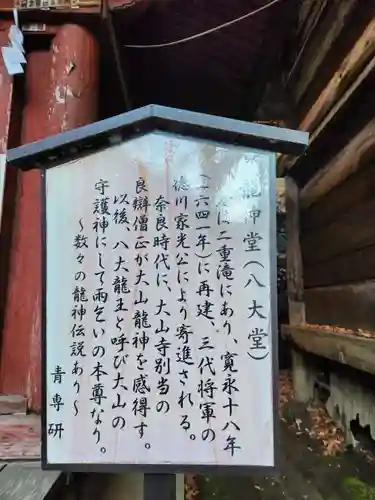 龍神堂(八大堂)
二重滝にあり、寛永十八年
(一六四一年)に再建、三代将軍の
徳川家光公により寄進される。
奈良時代に、大山寺別当の
良辯僧正が大山龍神を感得す。
以後、八大龍王と呼び大山の
守護神にして雨乞いの本尊なり。
～数々の龍神伝説あり～
青専研